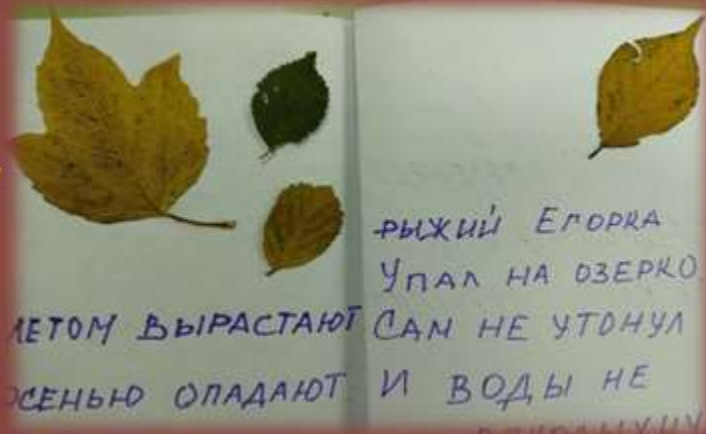 ЛЕТОМ ВЫРАСТАЮТ
ОСЕНЬЮ ОПАДАЮТ
РЫЖИЙ ЕГОРКА
УПАЛ НА ОЗЕРКО
САМ НЕ УТОНУЛ
И ВОДЫ НЕ